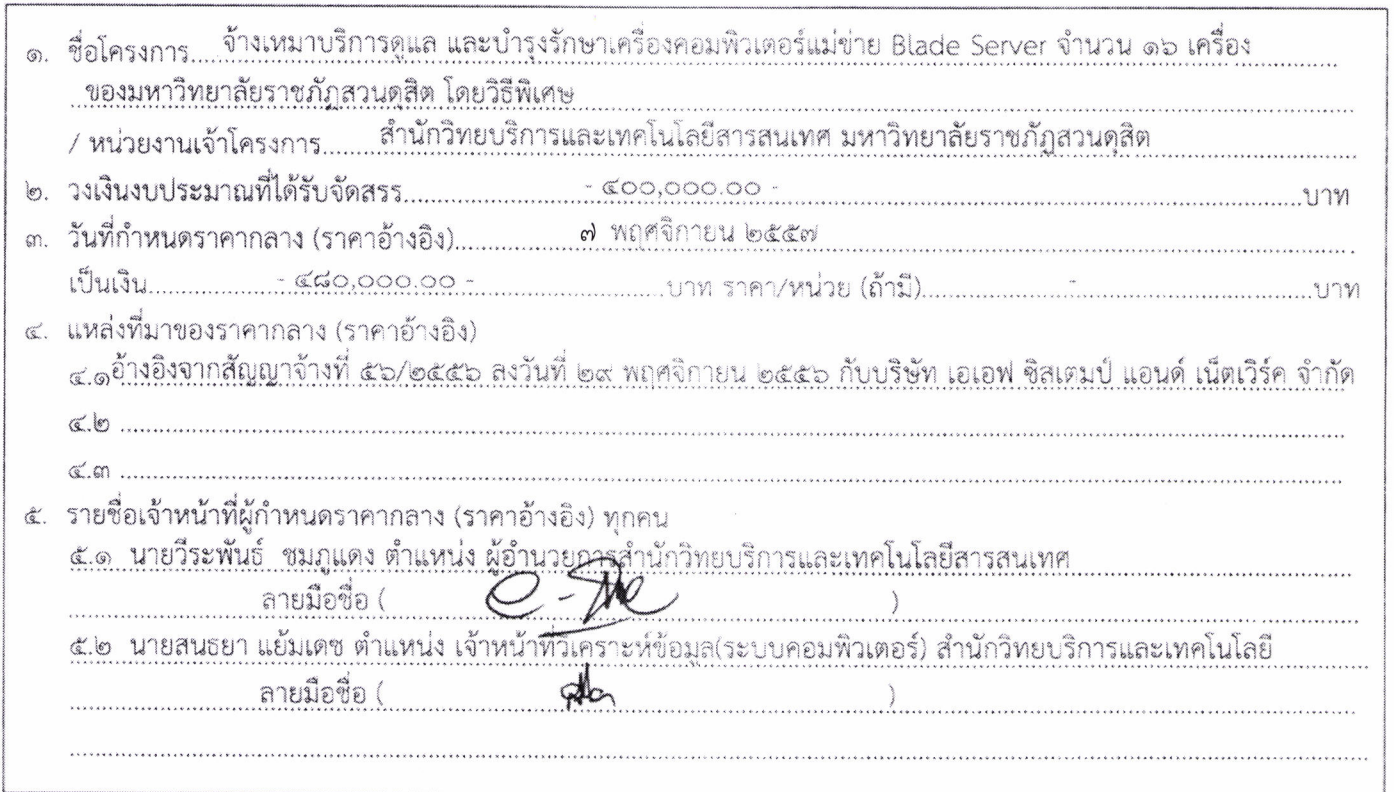 ๑. ชื่อโครงการ.....จ้างเหมาบริการดูแล และบำรุงรักษาเครื่องคอมพิวเตอร์แม่ข่าย Blade Server จำนวน ๑๖ เครื่อง
ของมหาวิทยาลัยราชภัฏสวนดุสิต โดยวิธีพิเศษ
/ หน่วยงานเจ้าโครงการ.........สำนักวิทยบริการและเทคโนโลยีสารสนเทศ มหาวิทยาลัยราชภัฏสวนดุสิต
๒. วงเงินงบประมาณที่ได้รับจัดสรร..............................- ๔๐๐,๐๐๐.๐๐ -..............................บาท
๓. วันที่กำหนดราคากลาง (ราคาอ้างอิง)....................๗ พฤศจิกายน ๒๕๕๗
เป็นเงิน....................- ๔๘๐,๐๐๐.๐๐ -..............................บาท ราคา/หน่วย (ถ้ามี)....................-..............................บาท
๔. แหล่งที่มาของราคากลาง (ราคาอ้างอิง)
๔.๑อ้างอิงจากสัญญาจ้างที่ ๕๖/๒๕๕๖ ลงวันที่ ๒๙ พฤศจิกายน ๒๕๕๖ กับบริษัท เอเอฟ ซิสเตมป์ แอนด์ เน็ตเวิร์ค จำกัด
๔.๒ ..............................
๔.๓ ..............................
๕. รายชื่อเจ้าหน้าที่ผู้กำหนดราคากลาง (ราคาอ้างอิง) ทุกคน
๕.๑ นายวีระพันธ์ ชมภูแดง ตำแหน่ง ผู้อำนวยการสำนักวิทยบริการและเทคโนโลยีสารสนเทศ
ลายมือชื่อ ( )
๕.๒ นายสนธยา แย้มเดช ตำแหน่ง เจ้าหน้าที่วิเคราะห์ข้อมูล(ระบบคอมพิวเตอร์) สำนักวิทยบริการและเทคโนโลยี
ลายมือชื่อ ( )